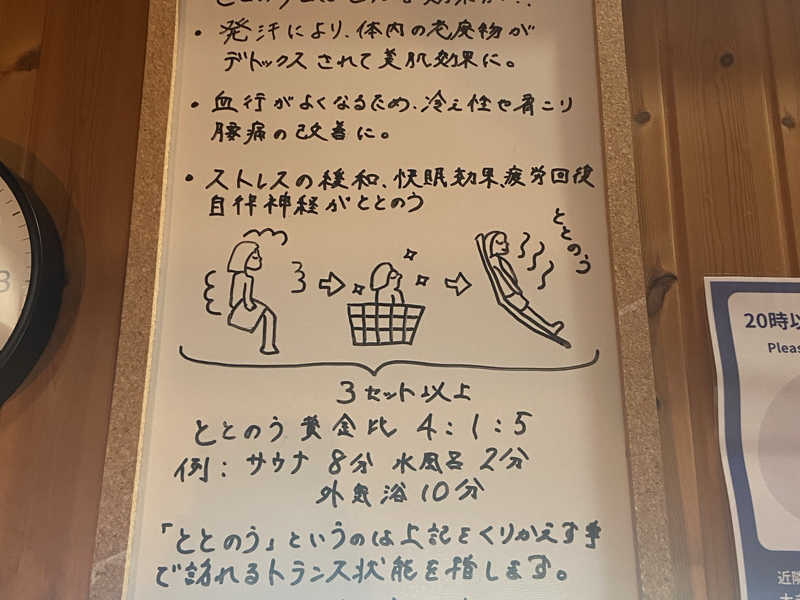 ・発汗により、体内の老廃物が
デトックスされて美肌効果に。
・血行がよくなるため、冷え性や肩こり
腰痛の改善に。
・ストレスの緩和、快眠効果、疲労回復
自律神経がととのう
ととのう
3セット以上
ととのう黄金比 4:1:5
例:サウナ 8分 水風呂 2分
外気浴 10分
「ととのう」というのは上記をくりかえす事
で訪れるトランス状態を指します。
3
20時以
Pleas
近隣